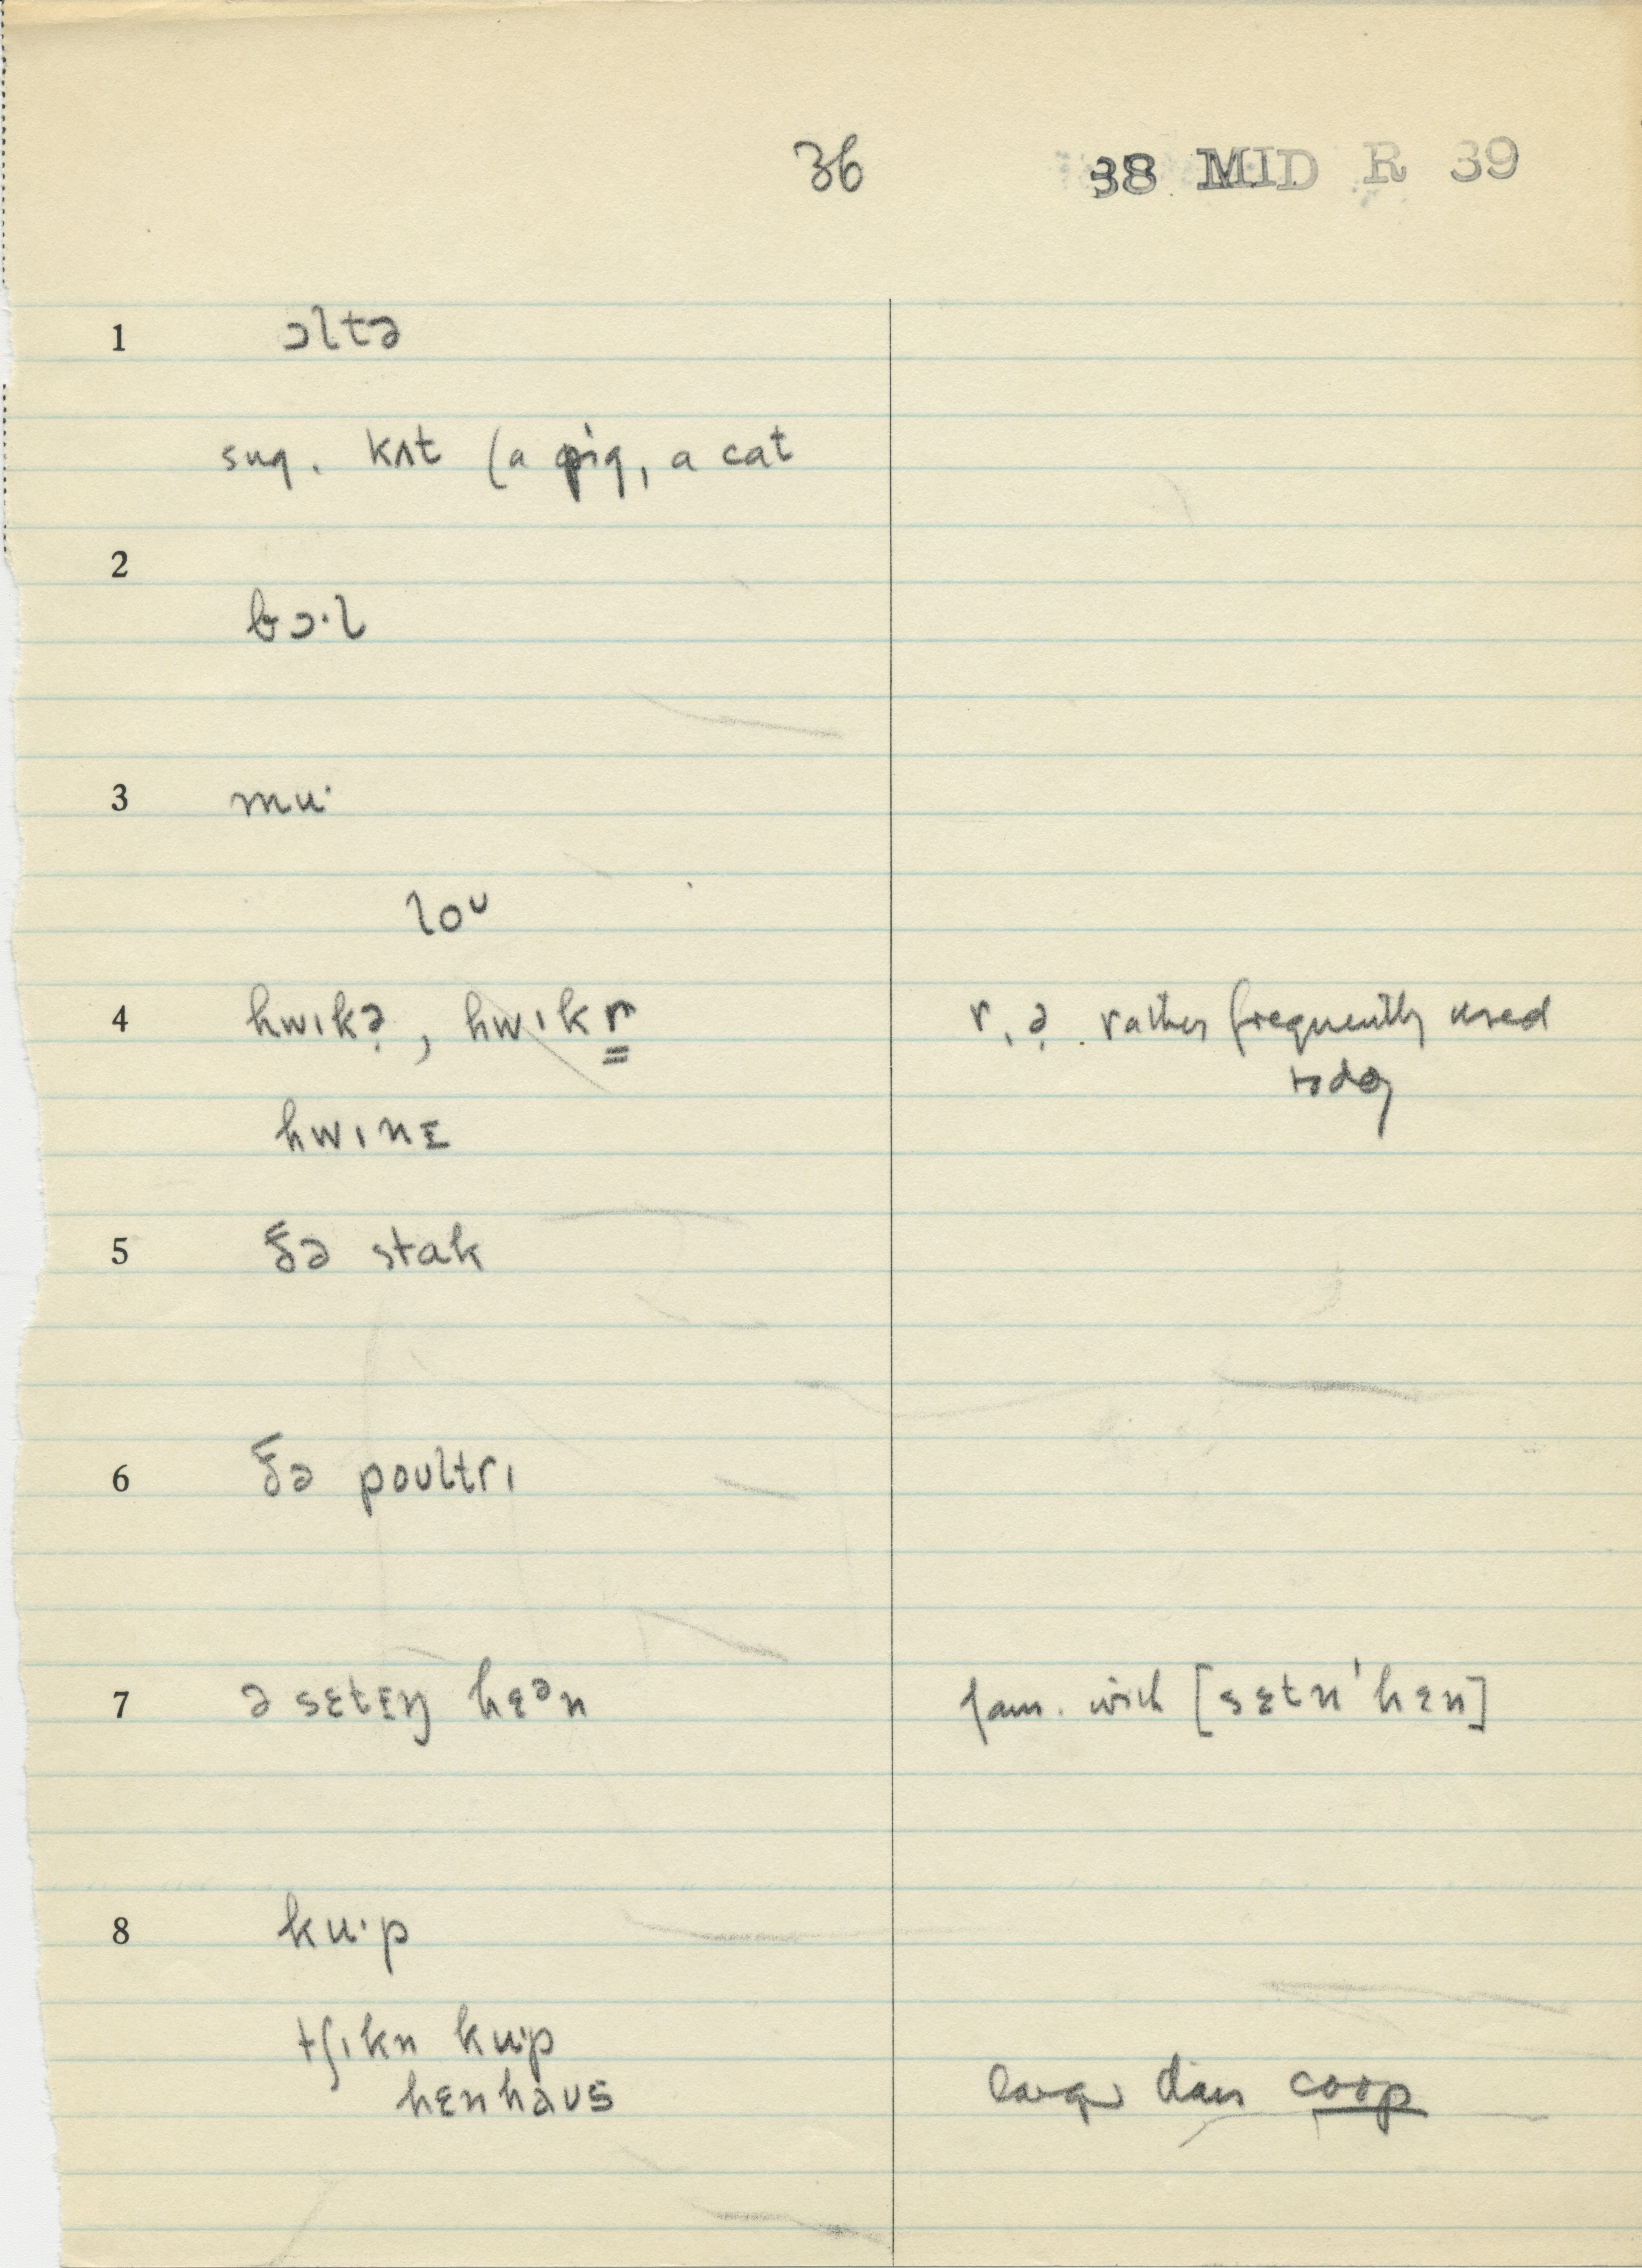 36 38 MID R 39
1 ɔltə
sug. kʌt (a pig, a cat
2
bɔ·l
3 mu·
loᴜ
4 hwɪkə̣, hwɪkr r, ə̣ rather frequently used
today
hwɪnɛ
5 ðə stak
6 ðə poʊltrɪ
7 ə sɛtɪŋ hɛᵊn fam. with [sɛtn'hɛn]
8 ku·p
tʃɪkn ku·p
hɛnhaʊs larger than coop